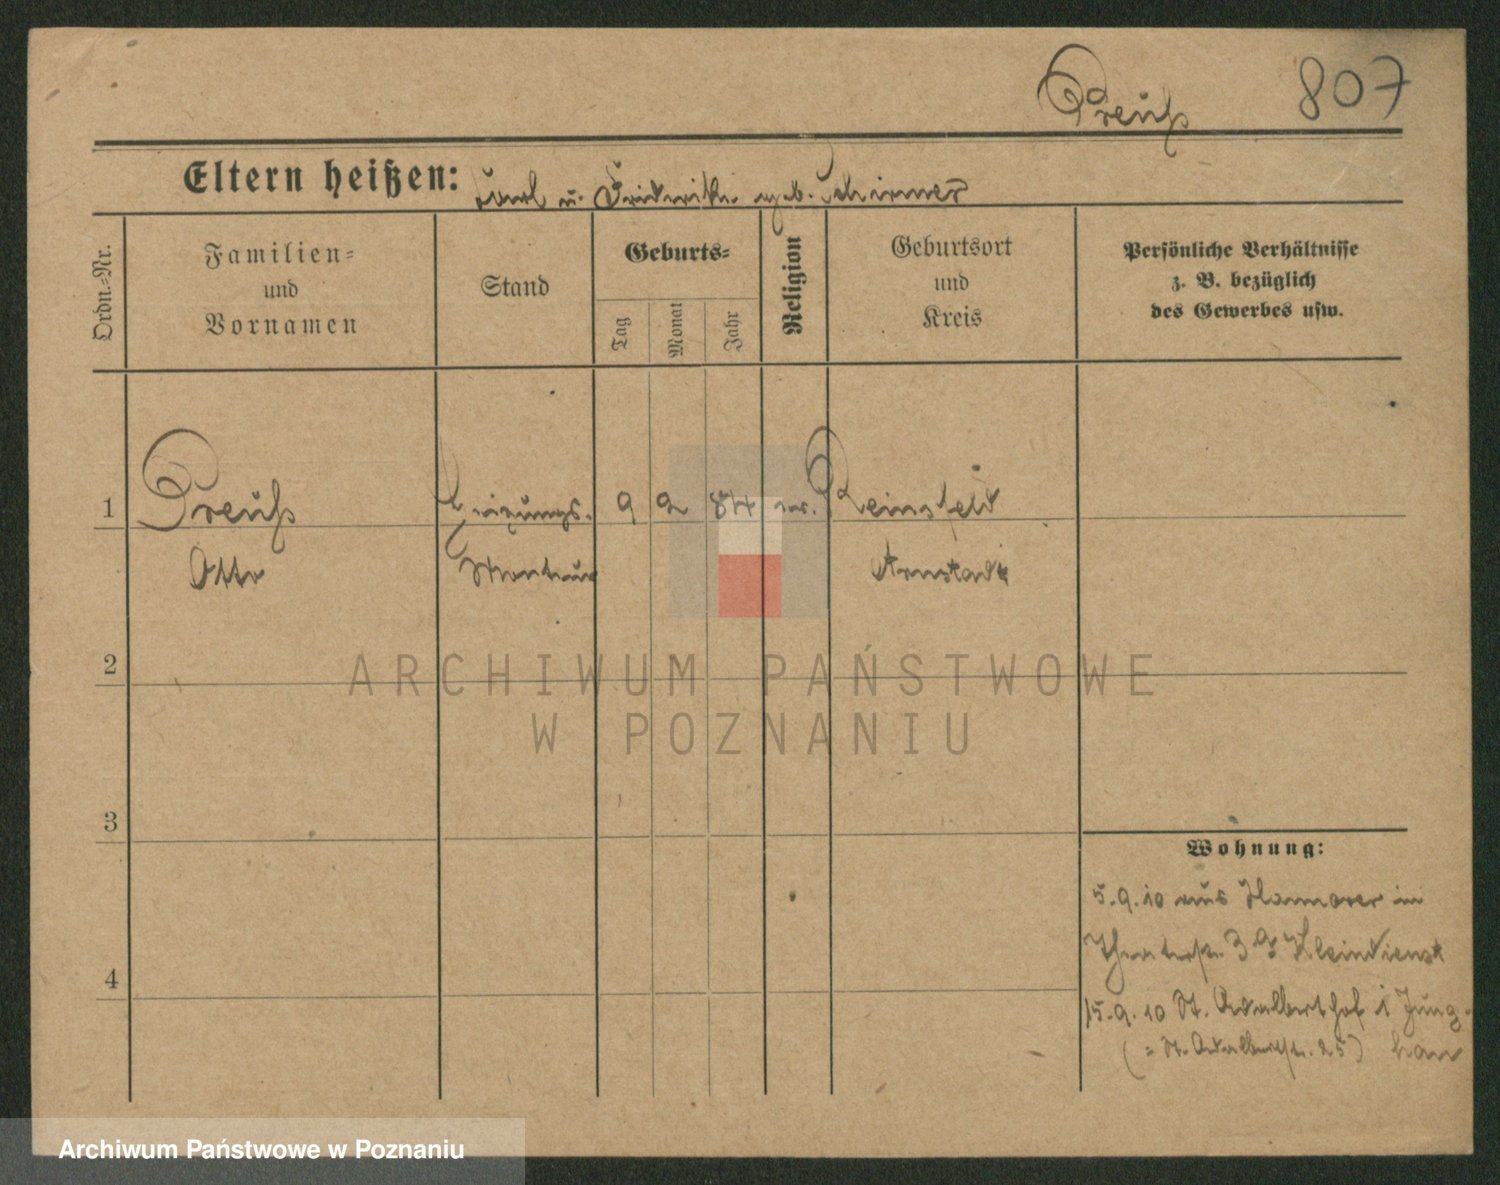 Preuß 807
Eltern heißen: Karl u. Friederike geb. Schirmer
Ordn.=Nr.
Familien=
und
Vornamen
Stand
Geburts=
Tag
Monat
Jahr
Religion
Geburtsort
und
Kreis
Persönliche Verhältnisse
z. B. bezüglich
des Gewerbes usw.
1 Preuß Heizungs- 9 2 84 ev. Reinsfeld
Otto Monteur Arnstadt
2
ARCHIWUM PAŃSTWOWE
W POZNANIU
3
Wohnung:
5.9.10 aus Hannover in
Theaterstr. 3 Kleindienst
4
15.9.10 St. Adalberthof i Jung-
(= St. Adalbertstr. 25) han
Archiwum Państwowe w Poznaniu